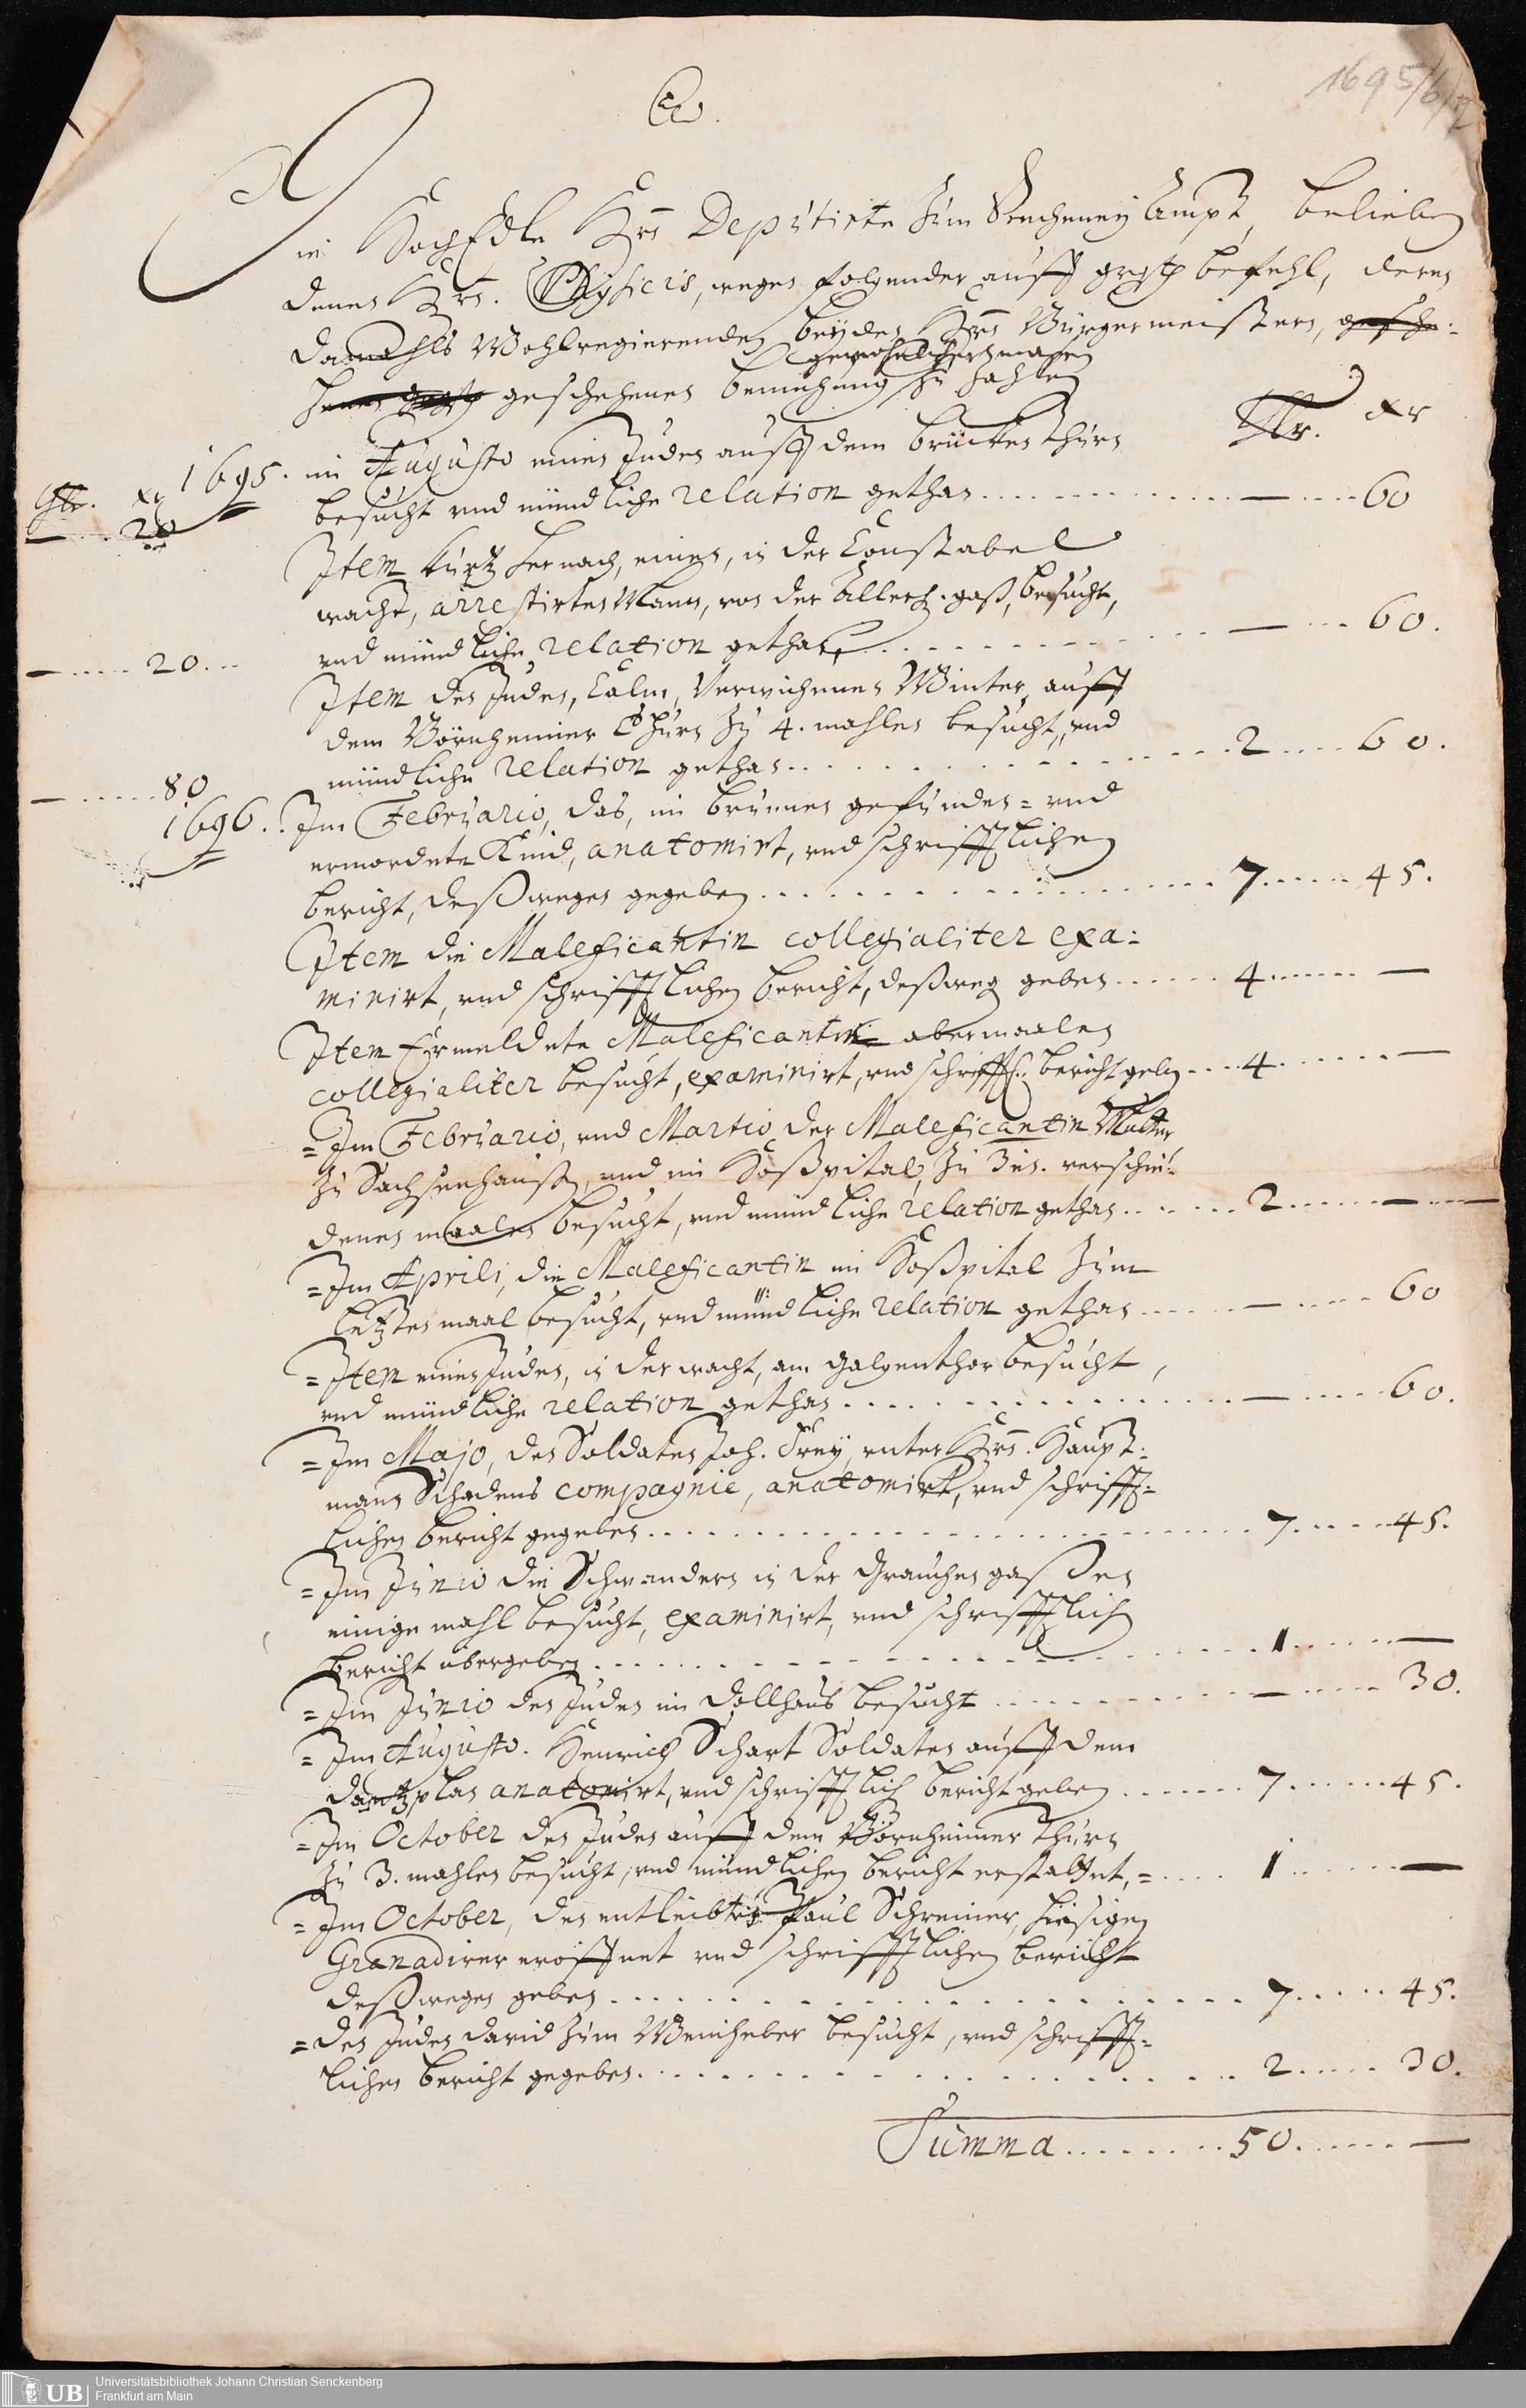 1695/6/7
Die HochEdle Hrn Deputirte Zum Recheney Ampt, belieben
denen Hrn. Physicis, wegen folgender auff befehl, deren
damahls Wohlregierenden beyden Hrn Bürgermeistern,
geschehenen bemühung zu zahlen
Thlr. xr
1695. im Augusto einen Juden auff dem brücken thurn
besucht und mündliche relation gethan ..... — ..... 60
xr
— ... 20
Item kurtz hernach, einen, in der Constabel
wacht, arrestirten Mann, von der Allerh. gaß, besucht,
und mündliche relation gethan ..... — ..... 60.
— ..... 20...
Item den Juden, Calm, Verwichenen Winter, auff
dem Bornheimer Thurn zu 4. mahlen besucht, und
mündliche relation gethan ..... 2 ..... 60.
— ..... 80
1696. Im Februario, das, im brunnen gefunden = und
ermordete Kind, anatomirt, und schrifftlichen
bericht, deßwegen gegeben ..... 7 ..... 45.
Item die Maleficantin collegialiter exa=
minirt, und schrifftlichen bericht, deßweg geben ..... 4 ..... —
Item Ermeldete Maleficantin abermaalen
collegialiter besucht, examinirt, und schrifftl. bericht geben .... 4 ..... —
= Im Februario, und Martio der Maleficantin Mutter
zu Sachsenhaußen, und im Hoßpital, zu verschie=
denen maalen besucht, und mündliche relation gethan ..... 2 ..... —
= Im Aprili, die Maleficantin im Hoßpital zum
letzten maal besucht, und mündliche relation gethan ..... — ..... 60
= Item einen Juden, in der wacht, am Galgenthor besucht,
und mündliche relation gethan ..... — ..... 60.
= Im Majo, den Soldaten Joh. Frey, unter Hrn. Haupt=
mann Schadens compagnie, anatomirt, und schrifft=
lichen bericht gegeben ..... 7 ..... 45.
= Im Junio die Schwandern in der Grauchen gaßen
einige mahl besucht, examinirt, und schrifftlich
bericht übergeben ..... 1 ..... —
= Im Junio den Juden im Dollhaus besucht ..... — ..... 30.
= Im Augusto. Henrich Schart Soldaten auff dem
dantzplan anatomirt, und schrifftlich bericht geben ..... 7 ..... 45.
= Im October den Juden auff dem Bornheimer Thurn
zu 3. mahlen besucht, und mündlichen bericht erstattet, = .... 1 ..... —
= Im October, den entleibten Paul Schreiner, hiesigen
Granadirer eröffnet und schrifftlichen bericht
deßwegen geben ..... 7 ..... 45.
= den Juden David zum Weinheber besucht, und schrifft=
lichen bericht gegeben ..... 2 ..... 30.
Summa ........ 50 ...... —
UB Universitätsbibliothek Johann Christian Senckenberg
Frankfurt am Main